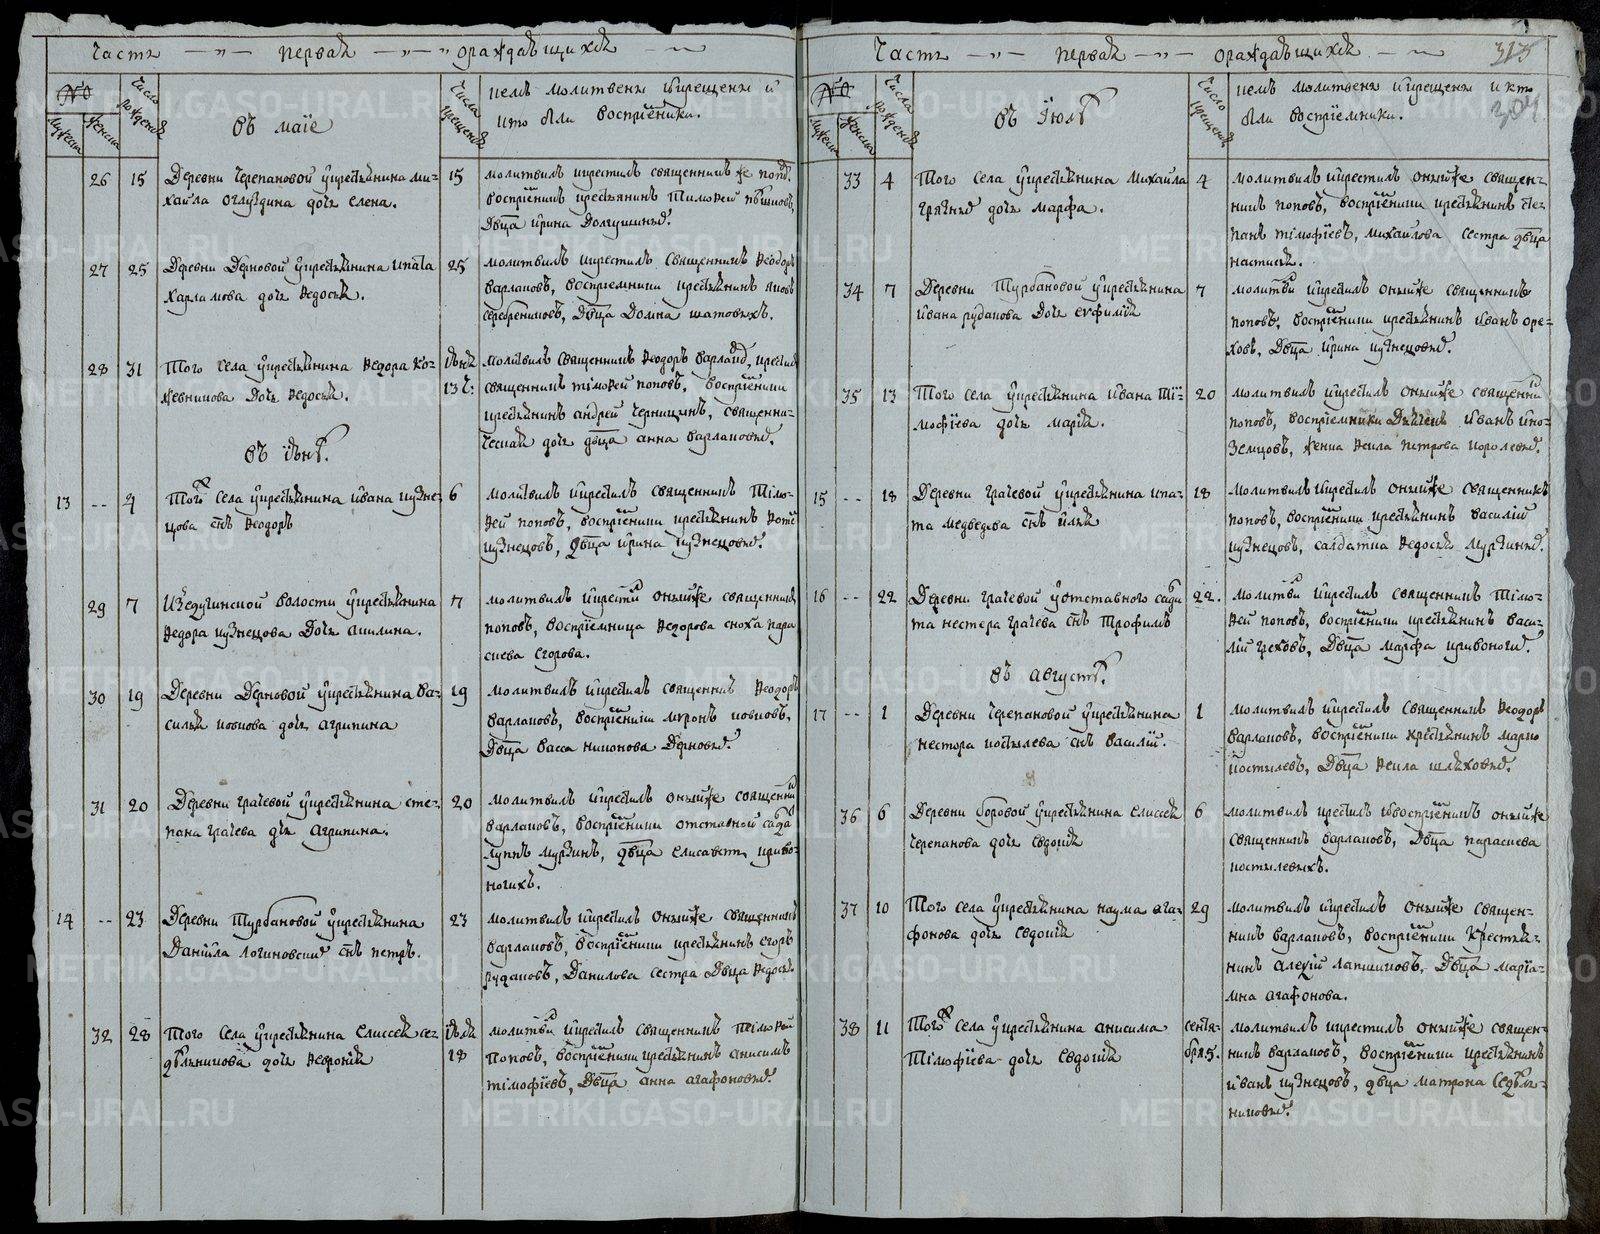 Часть — „ — первая — „ — „ о раждающихся —
№
мужеска
женска
Число рождения
въ маіе
Числа крещения
кемъ молитвенъ и крещенъ и
кто были воспріемники.
26 15 Деревни Черепановой у крестьянина Ми-
хаила Оглуздина дочь Елена.
15 молитвилъ и крестилъ священникъ же
воспріемникъ крестьянинъ Тимофей
Двца Ирина Долгушиныхъ.
27 25 Деревни Дерновой у крестьянина Ипата
Харламова дочь Федосья.
25 молитвилъ и крестилъ священникъ Феодоръ
Варлаковъ, воспріемники крестьянинъ Яковъ
Серебрениковъ, Двца Домна Шатовыхъ.
28 31 Того села у крестьянина Федора Ко-
жевникова дочь Федосья.
Июня
13 ч: молитвилъ священникъ Феодоръ Варлаков, крестилъ
священникъ Тимофей Поповъ, воспріемники
крестьянинъ Андрей Черницынъ, священни-
ческая дочь двца Анна Варлаковыхъ.
въ Июнѣ.
13 -- 4 Того Села у крестьянина Ивана Кузне-
цова снъ Феодоръ
6 молитвилъ и крестилъ священникъ Тимо-
фей Поповъ, воспріемники крестьянинъ
Кузнецовъ, двца Ирина Кузнецовыхъ.
29 7 волости у крестьянина
Федора Кузнецова дочь Акилина.
7 молитвилъ и крести оный же священникъ
Поповъ, воспріемница Федорова сноха Пара
скева Егорова.
30 19 Деревни Дерновой у крестьянина Ва-
силья Ковкова дочь Агрипина
19 молитвилъ и крестилъ священникъ Феодоръ
Варлаковъ, воспріемники Миронъ Ковковъ,
Двца Васса Никонова Дерновыхъ.
31 20 Деревни Грачевой у крестьянина Сте-
пана Грачева дчь Агрипина.
20 молитвилъ и крестилъ оный же священни
Варлаковъ, воспріемники отставной салда
Луппъ Мурзинъ, двца Елисаветъ Криво-
ногихъ.
14 -- 23 Деревни Турбановой у крестьянина
Даніила Логиновских снъ Петръ.
23 молитвилъ и крестилъ оный же священникъ
Варлаковъ, воспріемники крестьянинъ Егоръ
Рудаковъ, Данилова сестра Двца Федосья
32 28 Того Села у крестьянина Елисея Се-
дѣльникова дочь Февронія
Июля
18 молитви и крестилъ священникъ Тимофей
Поповъ, воспріемники крестьянинъ Анисимъ
Тімофіевъ, Двца Анна Агафоновыхъ.
Часть — „ — первая — „ — о раждающихся —
315
304
№
мужеска
женска
Числа рождения
въ Июлѣ
Число крещения
кемъ молитвенъ и крещенъ и кто
были воспріемники.
33 4 Того Села у крестьянина Михаила
Грязных дочь Марфа.
4 молитвилъ и крестилъ оный же священ-
никъ Поповъ, воспріемники крестьянинъ Сте-
панъ Тімофіевъ, Михайлова сестра двца
Настасья.
34 7 Деревни Турбановой у крестьянина
Ивана Рудакова дочь Евфимія
7 молитви и крестилъ оный же священникъ
Поповъ, воспріемники крестьянинъ Иванъ Оре-
ховъ, Двца Ирина Кузнецовых.
35 13 Того Села у крестьянина Ивана Ті-
мофіева дочь Марія.
20 молитвилъ и крестилъ оный же священни
Поповъ, воспріемники Дьячекъ Иванъ Ино-
земцовъ, жена Фекла Петрова Королевых.
15 -- 18 Деревни Грачевой у крестьянина Ипа-
та Медведева снъ Илья
18 молитвилъ и крестилъ оный же священникъ
Поповъ, воспріемники крестьянинъ Василій
Кузнецовъ, салдатка Федосья Мурзиных.
16 -- 22 Деревни Грачевой у отставного салда
та Нестера Грачева снъ Трофимъ
22. молитви и крестилъ священникъ Тімо-
фей Поповъ, воспріемники крестьянинъ Васи-
лій Греховъ, Двца Марфа Кривоногих.
въ Августѣ.
17 -- 1 Деревни Черепановой у крестьянина
Нестора Костылева снъ Василій.
1 молитвилъ и крестилъ священникъ Феодоръ
Варлаковъ, воспріемники крестьянинъ Марко
Костылевъ, Двца Фекла Шляховых.
36 6 Деревни Боровой у крестьянина Елисея
Черепанова дочь Евдокія
6 молитвилъ крестилъ и воспріемникъ оный же
священникъ Варлаковъ, Двца Параскева
Костылевыхъ.
37 10 Того Села у крестьянина Наума Ага-
фонова дочь Евдокія
29 молитвилъ и крестилъ оный же священ-
никъ Варлаковъ, воспріемники крестья-
нинъ Алексій Лапшиновъ, Двца Марія-
мна Агафонова.
38 11 Того Села у крестьянина Анисима
Тімофіева дочь Евдокія
Сентя-
бря 5. молитвилъ и крестилъ оный же священ-
никъ Варлаковъ, воспріемники крестьянинъ
Иванъ Кузнецовъ, двца Матрона Седѣль-
никовых.